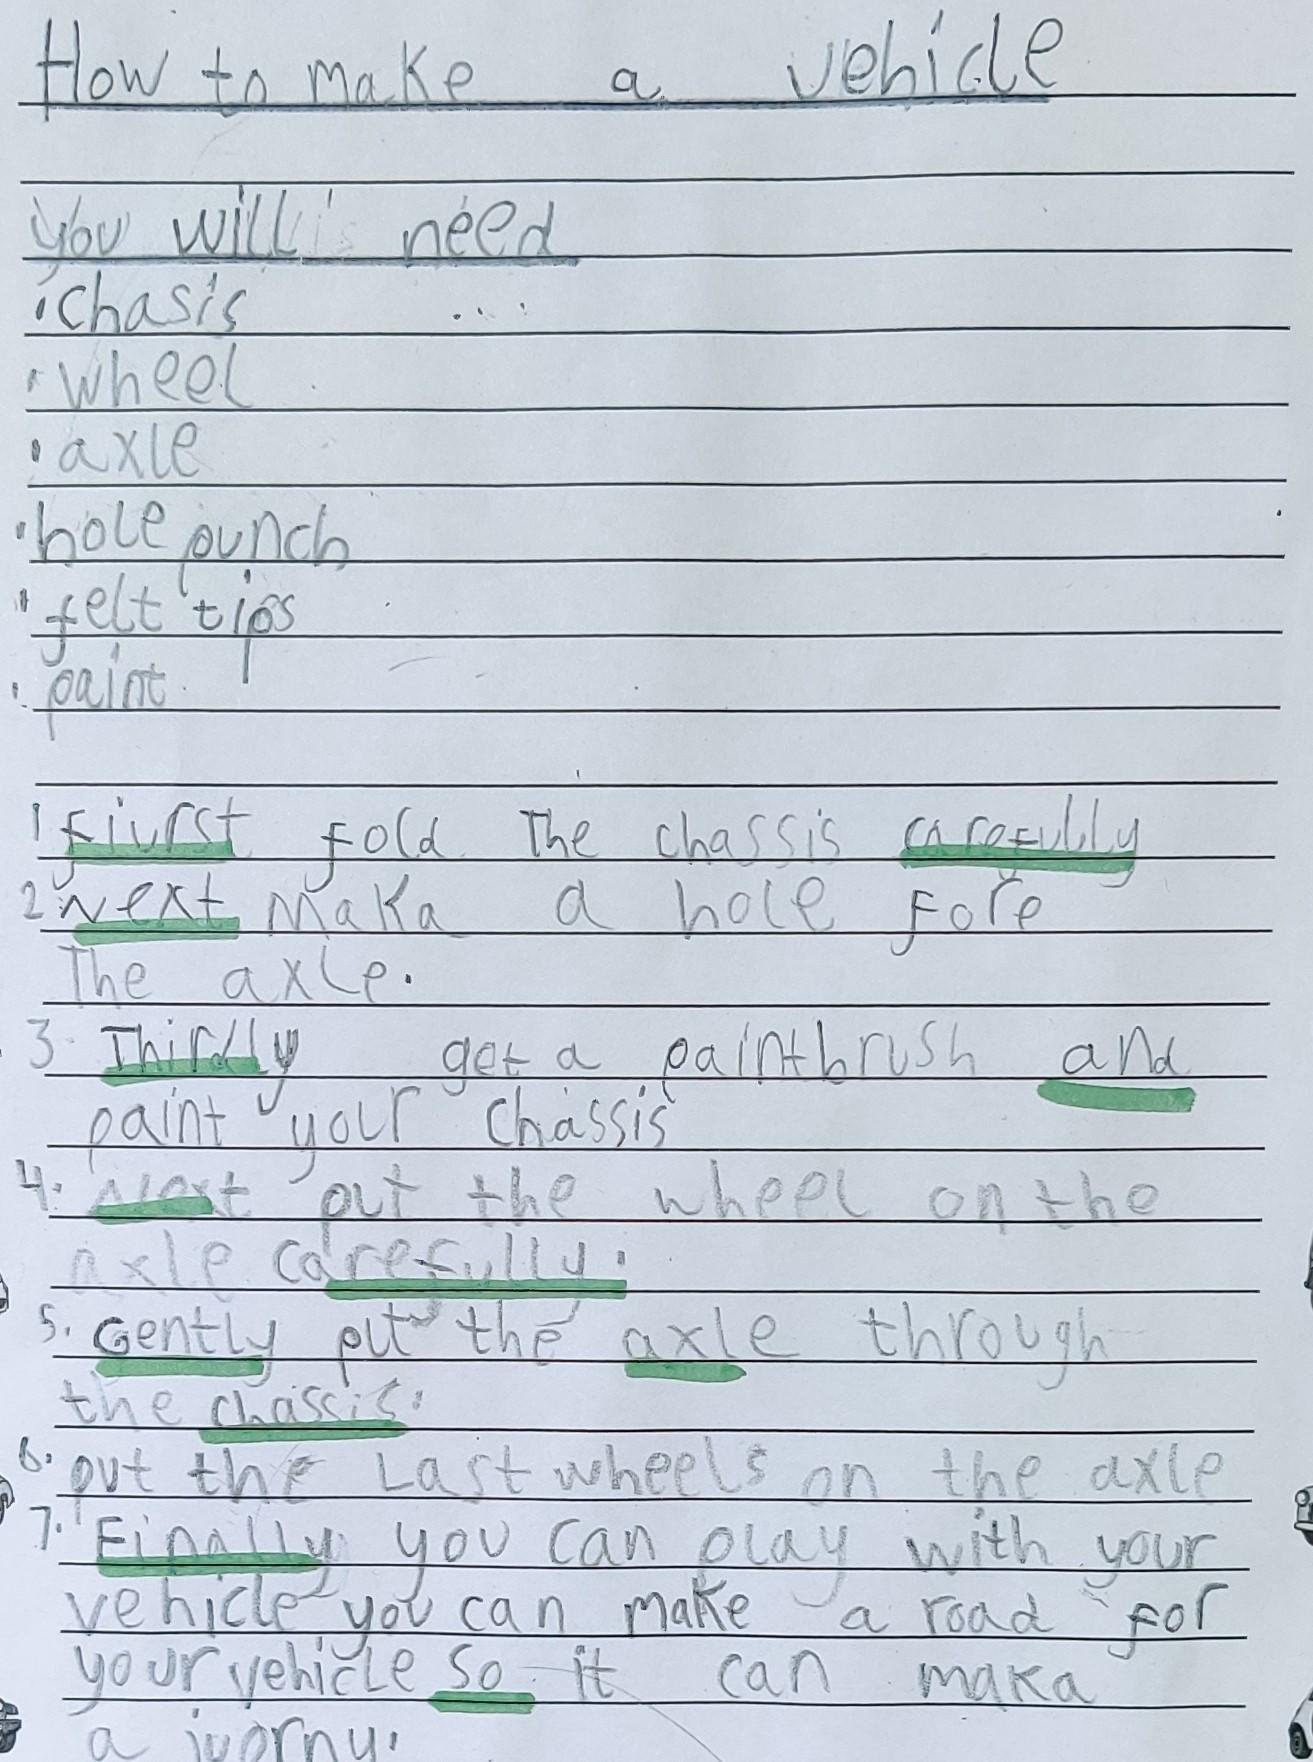 How to make a vehicle
you will need
• chasis
• wheel
• axle
• hole punch
• felt tips
• paint
1 fiurst fold The chassis carefully
2 Next Maka a hole Fore
The axle.
3. Thirdly get a paintbrush and
paint your chassis
4. Next put the wheel on the
axle carefully.
5. Gently put the axle through
the chassis.
6. put the Last wheels on the axle
7. Finally you can play with your
vehicle you can make a road for
your vehicle so it can maka
a juorny.